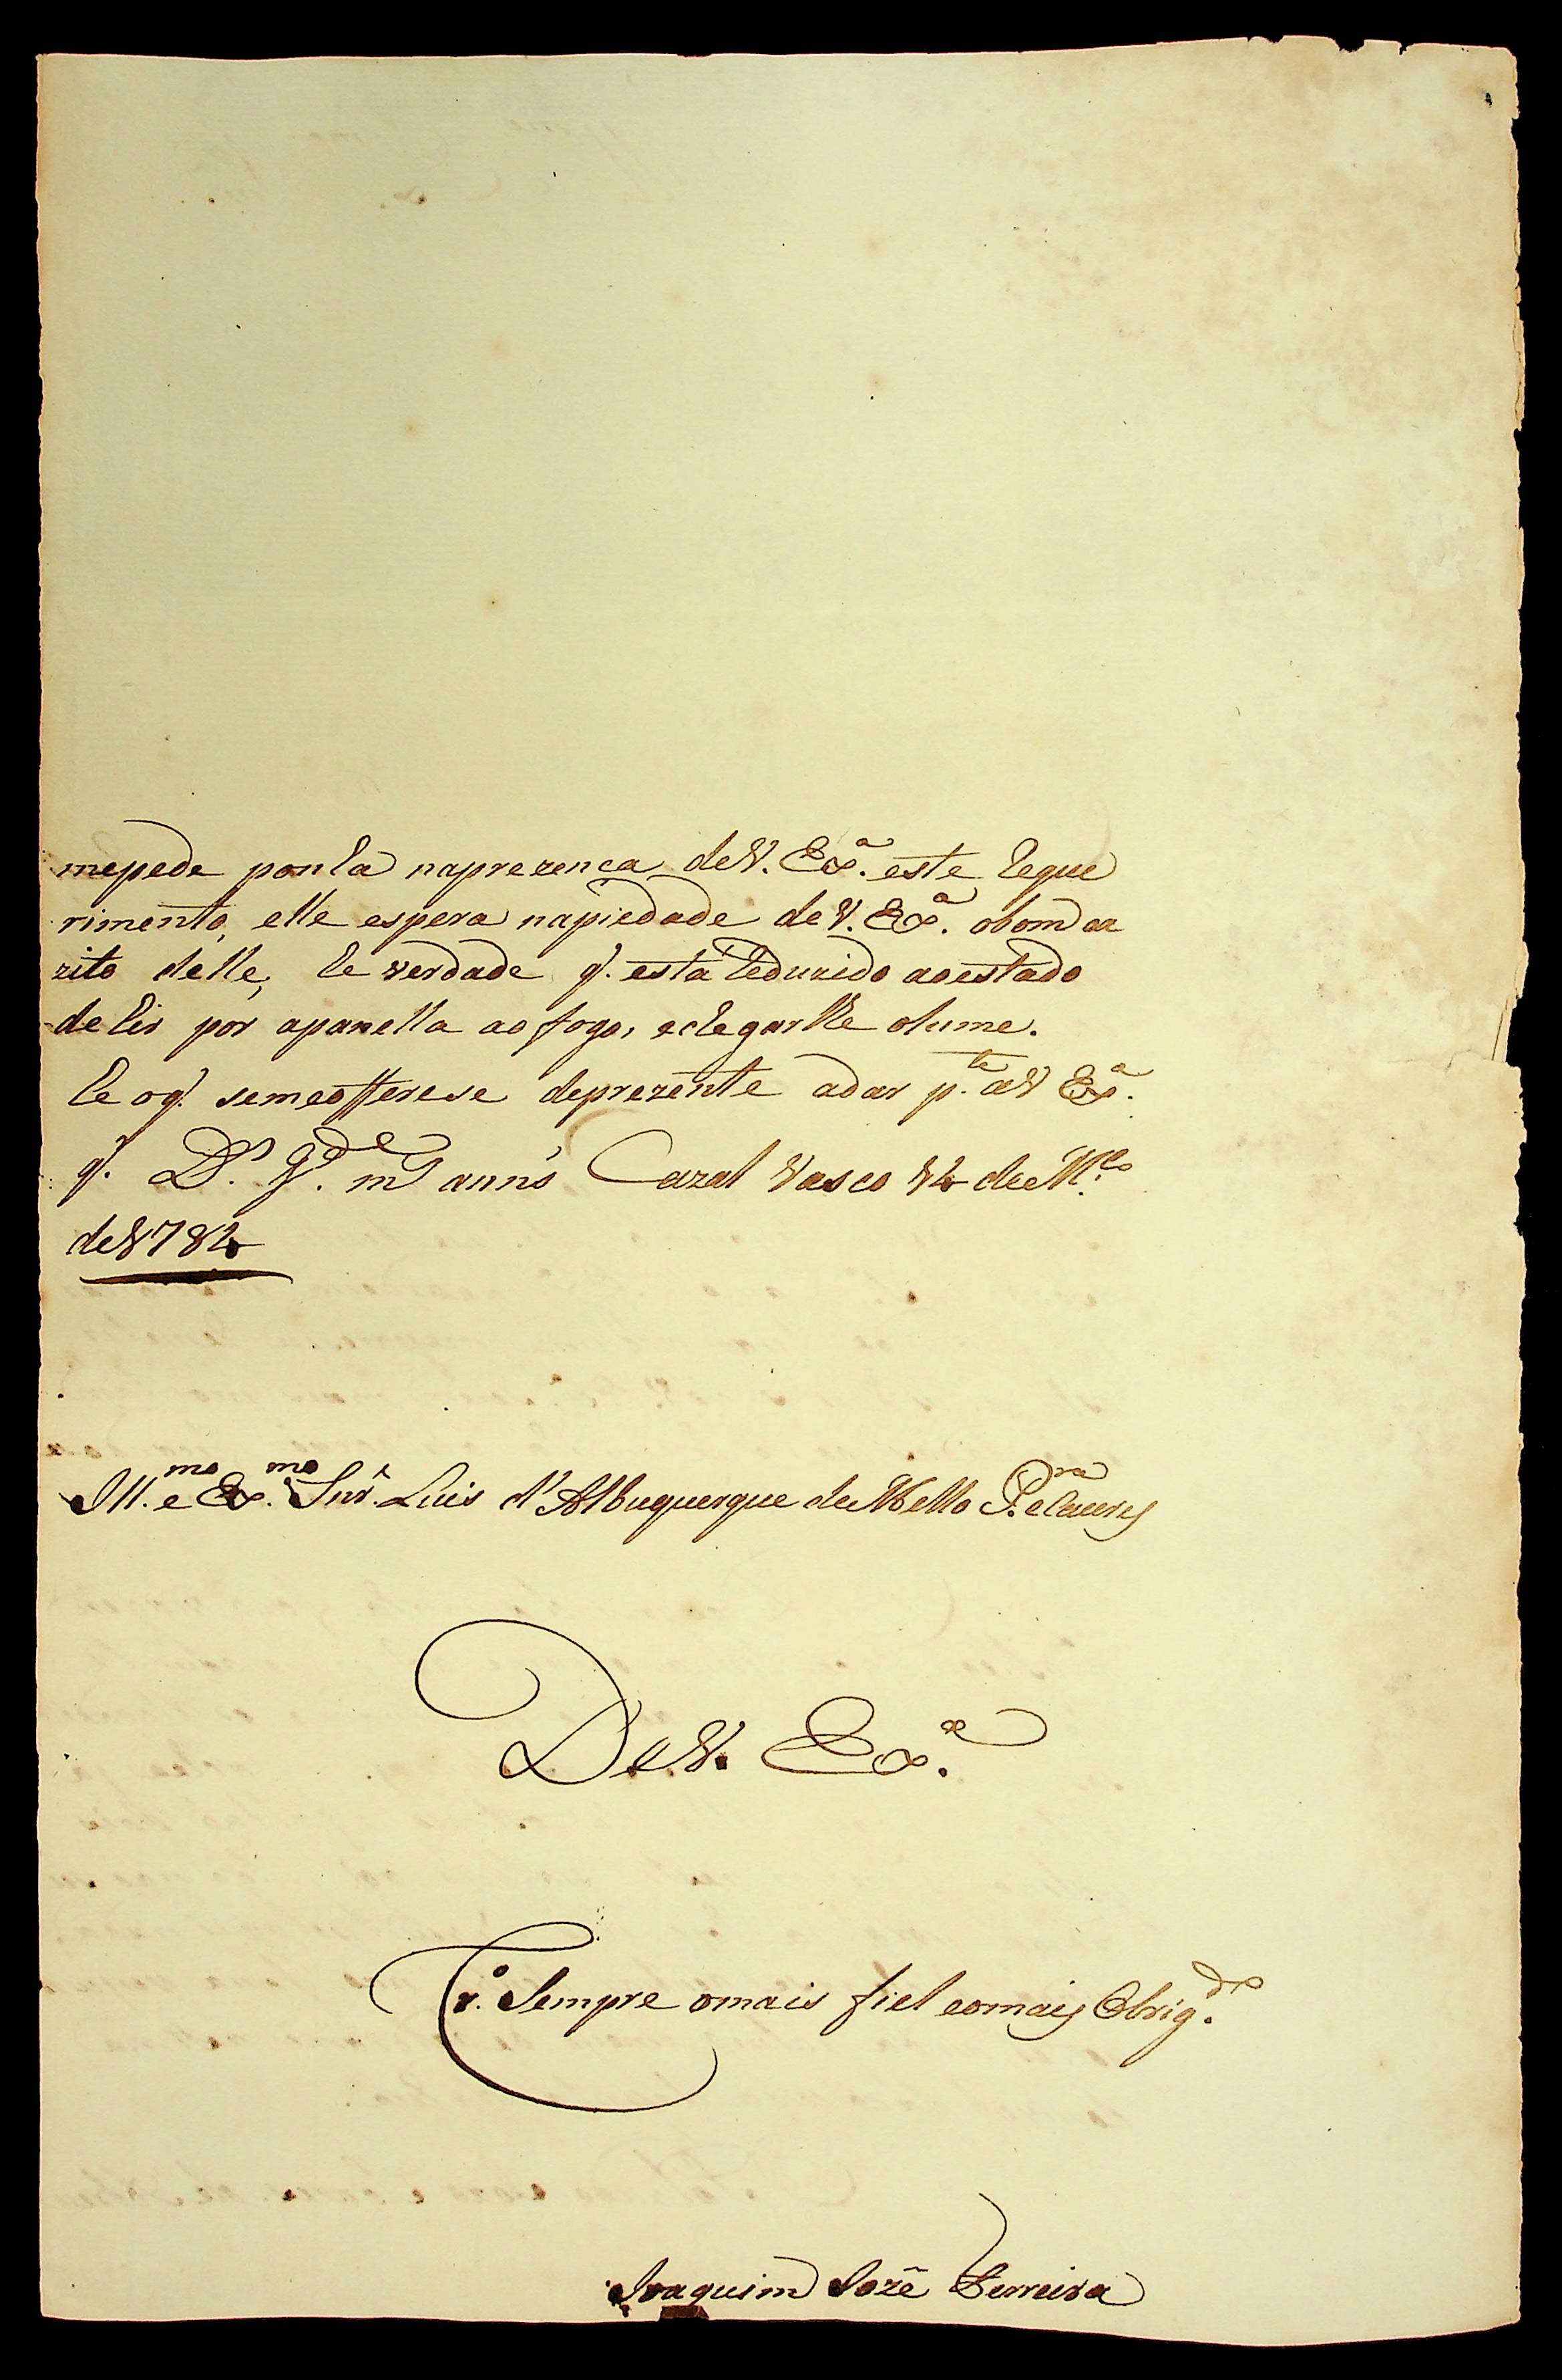 mepede ponha naprezenca de V. Exª. este reque
rimento, elle espera napiedade de V. Exª. obom ex
zito delle, he verdade q̃. está reduzido aoestado
de hir por apanella ao fogo, echegarlhe olume.
he oq̃. semeofferese deprezente adar p.te aV Exª.
q̃. D.s G.de m annos Cazal Vasco de M.ço
de 1782
Ill.mo e Ex.mo Snr̃. Luis d'Albuquerque de Mello P.ra eCaceres
De V. Exª.
Cr.º Sempre omais fiel eomais Obrig.do
Joaquim Jozê Ferreira